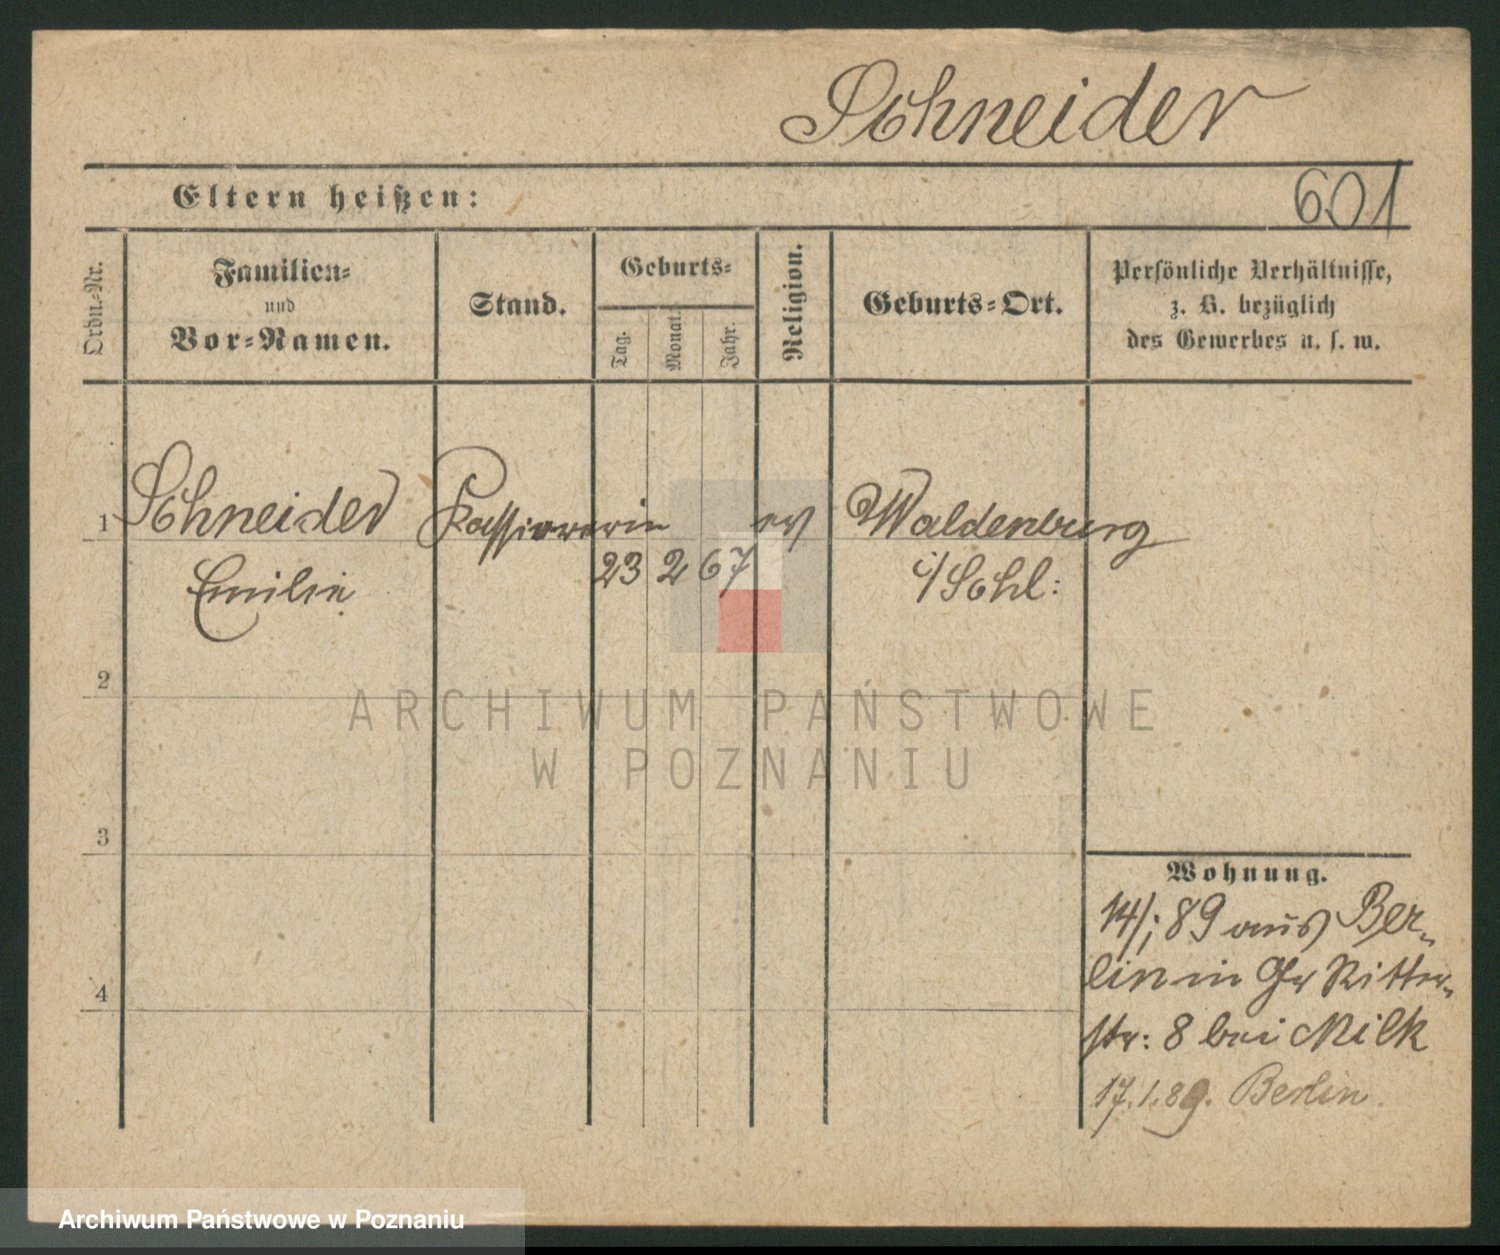 Schneider
Eltern heißen:
601
Ordn.-Nr.
Familien-
und
Vor-Namen.
Stand.
Geburts-
Tag.
Monat.
Jahr.
Religion.
Geburts-Ort.
Persönliche Verhältnisse,
z. B. bezüglich
des Gewerbes u. s. w.
1 Schneider Kassirerin ev Waldenburg
Emilie 23 2 67 i/Schl:
2
ARCHIWUM PAŃSTWOWE
W POZNANIU
3
Wohnung.
14/; 89 aus Ber-
lin in Gr Ritter-
4
str: 8 bei Milk
17.1.89. Berlin.
Archiwum Państwowe w Poznaniu